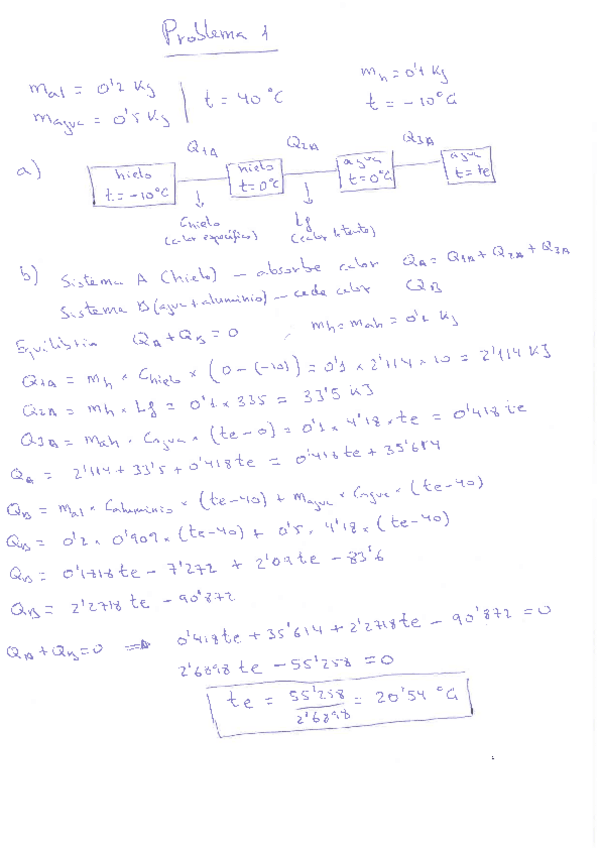 Problema 1
mal = 0'2 Kg
magua = 0'5 Kg
t = 40 °C
mh = 0'1 Kg
t = -10 °C
a)
Q1A Q2A Q3A
hielo t = -10°C
hielo t = 0°C
agua t = 0°C
agua t = te
Chielo (calor específico)
Lf (calor latente)
b) Sistema A (hielo) - absorbe calor QA = Q1A + Q2A + Q3A
Sistema B (agua + aluminio) - cede calor QB
Equilibrio QA + QB = 0 mh = mah = 0'1 Kg
Q1A = mh × Chielo × (0 - (-10)) = 0'1 × 2'114 × 10 = 2'114 KJ
Q2A = mh × Lf = 0'1 × 335 = 33'5 KJ
Q3A = mah · Cagua × (te - 0) = 0'1 × 4'18 × te = 0'418 te
QA = 2'114 + 33'5 + 0'418 te = 0'418 te + 35'614
QB = mal · Caluminio × (te - 40) + magua × Cagua × (te - 40)
QB = 0'2 × 0'909 × (te - 40) + 0'5 · 4'18 × (te - 40)
QB = 0'1818 te - 7'272 + 2'09 te - 83'6
QB = 2'2718 te - 90'872
QA + QB = 0 ⇒ 0'418 te + 35'614 + 2'2718 te - 90'872 = 0
2'6898 te - 55'258 = 0
te = 55'258 / 2'6898 = 20'54 °C